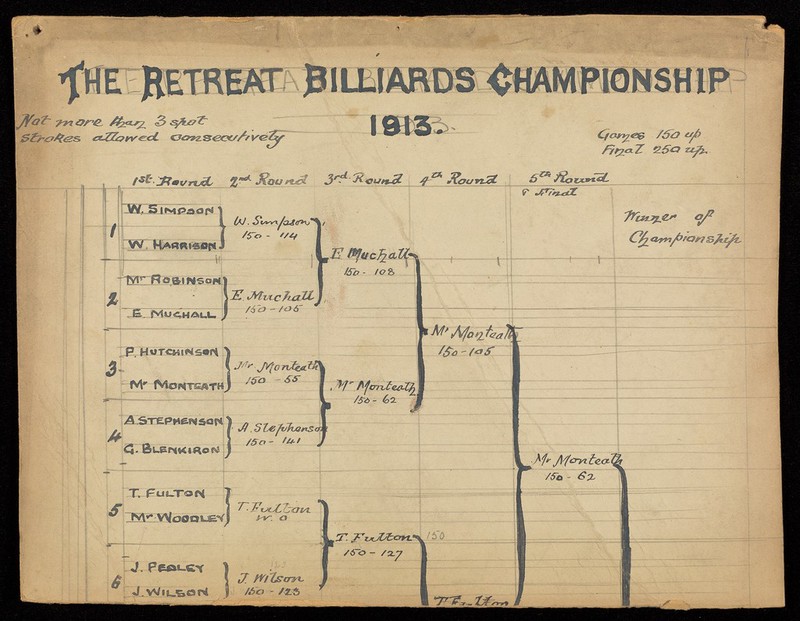 THE RETREAT BILLIARDS CHAMPIONSHIP
1913.
Not more than 3 spot
strokes allowed consecutively
Games 150 up
Final 250 up.
1st Round 2nd Round 3rd Round 4th Round 5th Round
& Final
Winner of
Championship
1
W. SIMPSON
W. HARRISON
2
Mr ROBINSON
E. MUCHALL
3
P. HUTCHINSON
Mr MONTEATH
4
A STEPHENSON
G. BLENKIRON
5
T. FULTON
Mr WOODLEY
6
J. PEALEY
J. WILSON
W. Simpson
150 - 114
E. Muchall
150 - 105
Mr Monteath
150 - 55
A. Stephenson
150 - 141
T. Fulton
W. O
J. Wilson
150 - 123
E Muchall
150 - 108
Mr Monteath
150 - 62
T. Fulton
150 - 127
Mr Monteath
150 - 105
150
T. Fulton
Mr Monteath
150 - 62